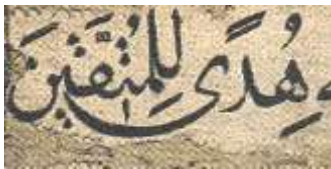 هُدًى لِلْمُتَّقِينَ